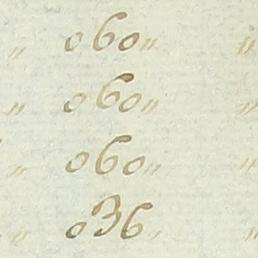 „ 060 „ „
„ 060 „ „
„ 060 „ „
„ 036 „ „